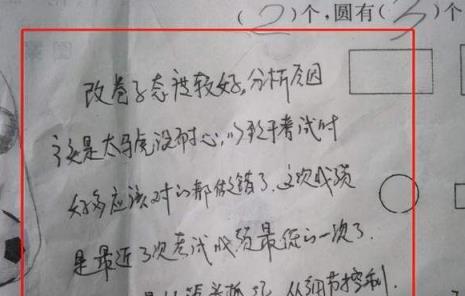 (2)个,圆有(3)个
改卷子态度较好,分析原因
还是太马虎没耐心,以致于考试时
好多应该对的都做错了.这次成绩
是最近3次考试成绩最低的一次了.
从细节控制.